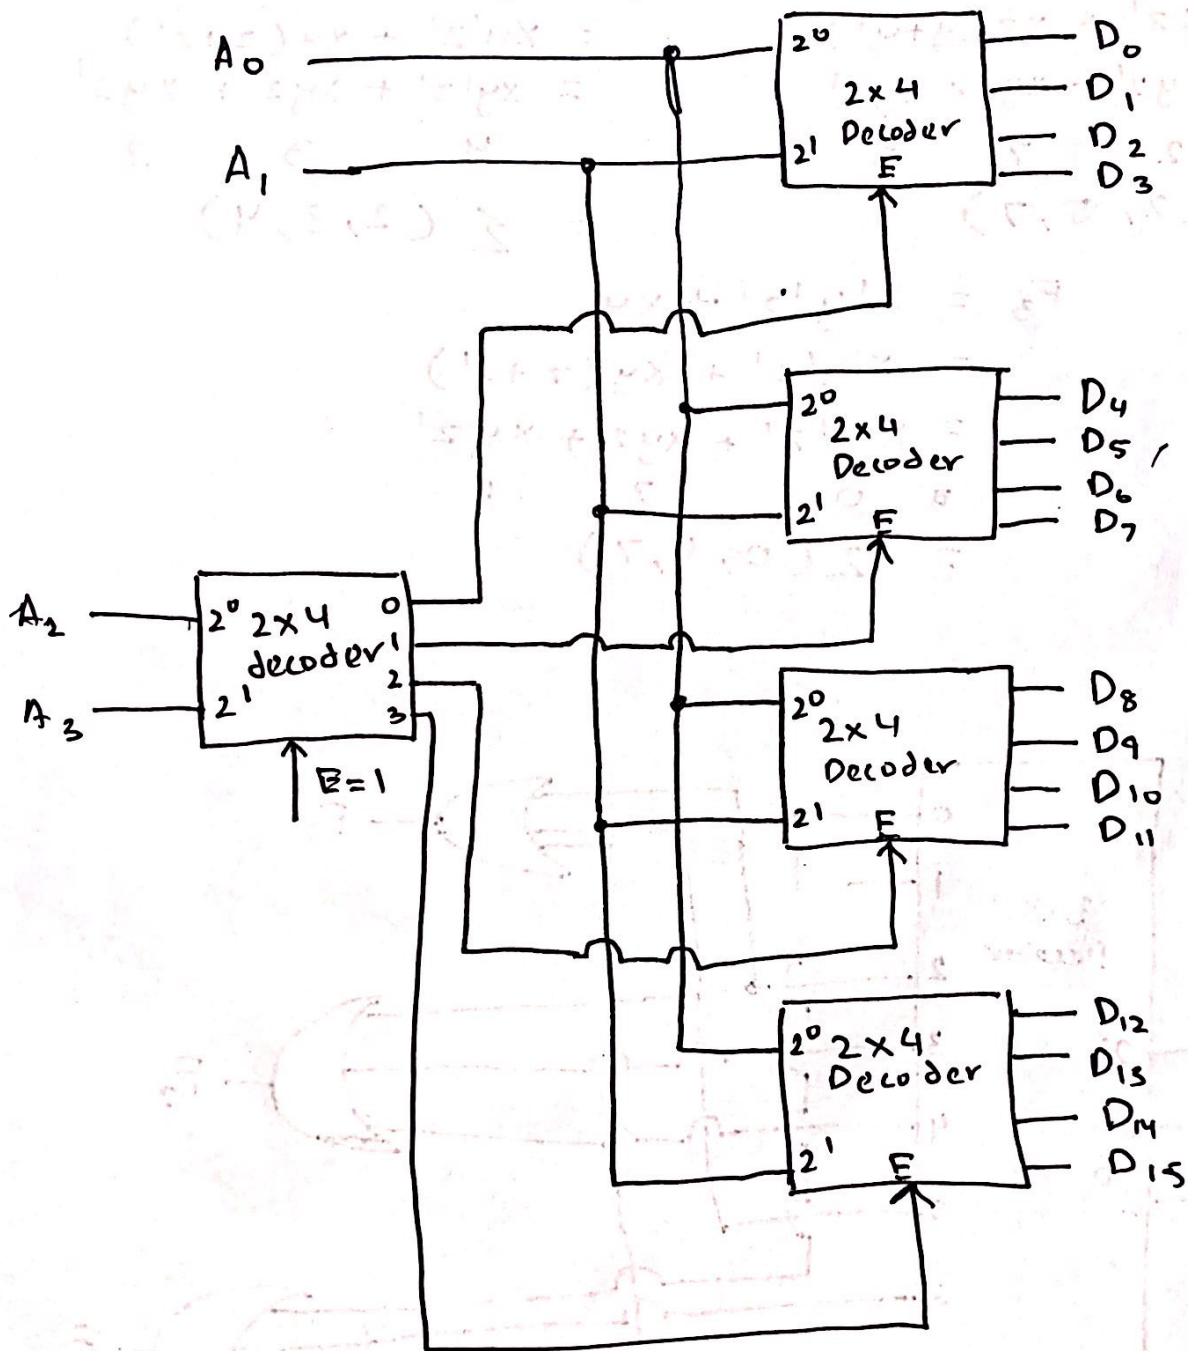 A₀
2⁰
2x4
Decoder
2¹
E
D₀
D₁
D₂
D₃
A₁
2⁰
2x4
Decoder
2¹
E
D₄
D₅
D₆
D₇
A₂
A₃
2⁰ 2x4
decoder
2¹
0
1
2
3
E=1
2⁰
2x4
Decoder
2¹
E
D₈
D₉
D₁₀
D₁₁
2⁰ 2x4
Decoder
2¹
E
D₁₂
D₁₃
D₁₄
D₁₅